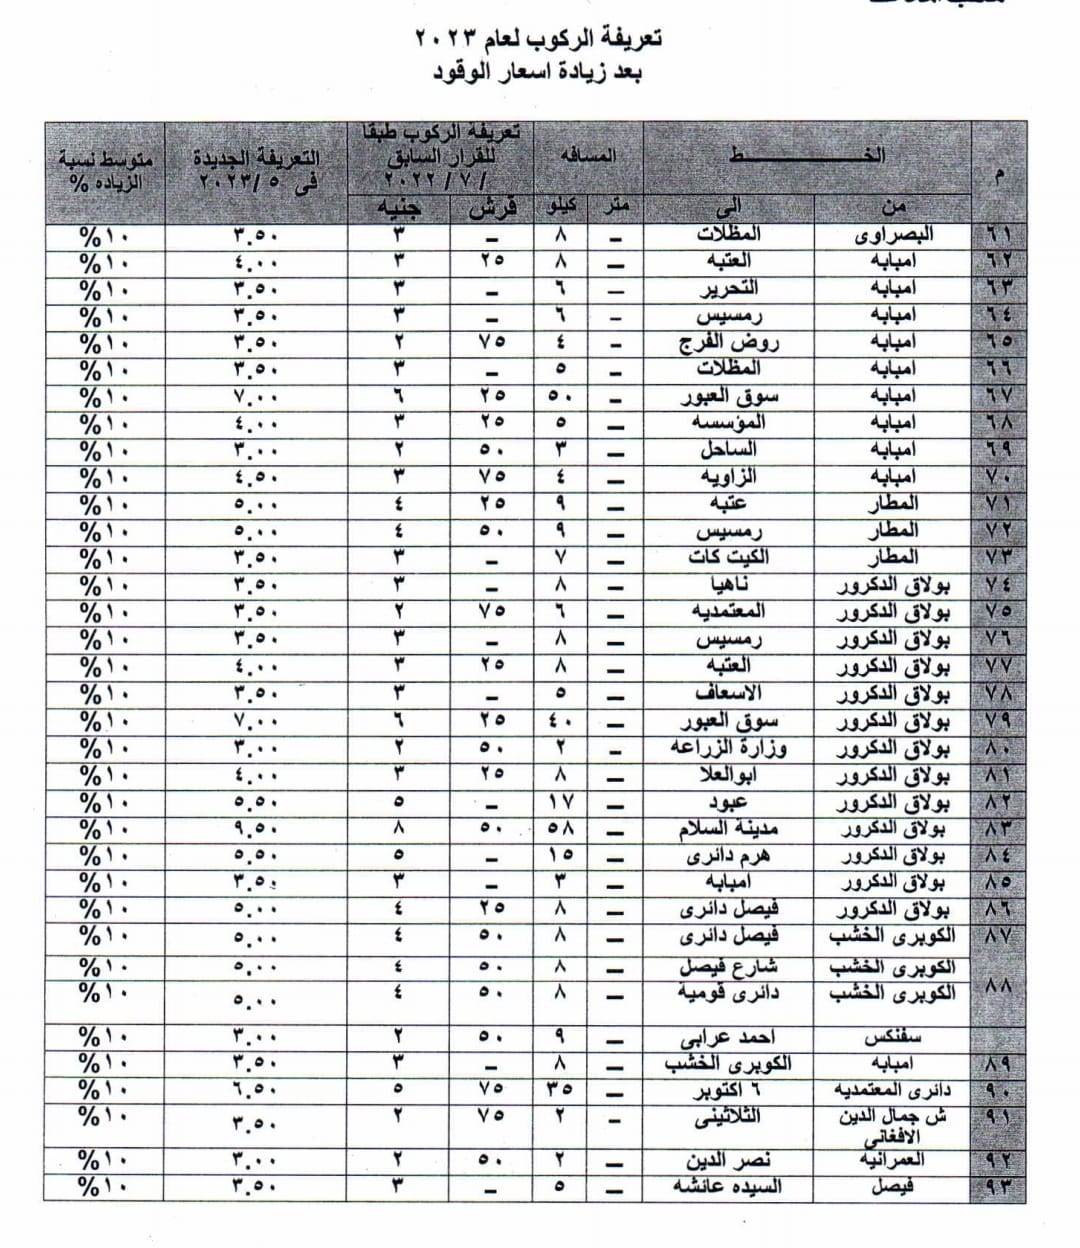 تعريفة الركوب لعام ٢٠٢٣
بعد زيادة اسعار الوقود
م الخـــــط المسافه تعريفة الركوب طبقا للقرار السابق / ٧ / ٢٠٢٢ التعريفة الجديدة فى ٥ /٢٠٢٣ متوسط نسبة الزياده %
من الى متر كيلو قرش جنيه
٦١ البصراوى المظلات – ٨ – ٣ ٣.٥٠ ١٠%
٦٢ امبابه العتبه – ٨ ٢٥ ٣ ٤.٠٠ ١٠%
٦٣ امبابه التحرير – ٦ – ٣ ٣.٥٠ ١٠%
٦٤ امبابه رمسيس – ٦ – ٣ ٣.٥٠ ١٠%
٦٥ امبابه روض الفرج – ٤ ٧٥ ٢ ٣.٥٠ ١٠%
٦٦ امبابه المظلات – ٥ – ٣ ٣.٥٠ ١٠%
٦٧ امبابه سوق العبور – ٥٠ ٢٥ ٦ ٧.٠٠ ١٠%
٦٨ امبابه المؤسسه – ٥ ٢٥ ٣ ٤.٠٠ ١٠%
٦٩ امبابه الساحل – ٣ ٥٠ ٢ ٣.٠٠ ١٠%
٧٠ امبابه الزاويه – ٤ ٧٥ ٣ ٤.٥٠ ١٠%
٧١ المطار عتبه – ٩ ٢٥ ٤ ٥.٠٠ ١٠%
٧٢ المطار رمسيس – ٩ ٥٠ ٤ ٥.٠٠ ١٠%
٧٣ المطار الكيت كات – ٧ – ٣ ٣.٥٠ ١٠%
٧٤ بولاق الدكرور ناهيا – ٨ – ٣ ٣.٥٠ ١٠%
٧٥ بولاق الدكرور المعتمديه – ٦ ٧٥ ٢ ٣.٥٠ ١٠%
٧٦ بولاق الدكرور رمسيس – ٨ – ٣ ٣.٥٠ ١٠%
٧٧ بولاق الدكرور العتبه – ٨ ٢٥ ٣ ٤.٠٠ ١٠%
٧٨ بولاق الدكرور الاسعاف – ٥ – ٣ ٣.٥٠ ١٠%
٧٩ بولاق الدكرور سوق العبور – ٤٠ ٢٥ ٦ ٧.٠٠ ١٠%
٨٠ بولاق الدكرور وزارة الزراعه – ٢ ٥٠ ٢ ٣.٠٠ ١٠%
٨١ بولاق الدكرور ابوالعلا – ٨ ٢٥ ٣ ٤.٠٠ ١٠%
٨٢ بولاق الدكرور عبود – ١٧ – ٥ ٥.٥٠ ١٠%
٨٣ بولاق الدكرور مدينة السلام – ٥٨ ٥٠ ٨ ٩.٥٠ ١٠%
٨٤ بولاق الدكرور هرم دائرى – ١٥ – ٥ ٥.٥٠ ١٠%
٨٥ بولاق الدكرور امبابه – ٣ – ٣ ٣.٥٠ ١٠%
٨٦ بولاق الدكرور فيصل دائرى – ٨ ٢٥ ٤ ٥.٠٠ ١٠%
٨٧ الكوبرى الخشب فيصل دائرى – ٨ ٥٠ ٤ ٥.٠٠ ١٠%
٨٨ الكوبرى الخشب شارع فيصل – ٨ ٥٠ ٤ ٥.٠٠ ١٠%
الكوبرى الخشب دائرى قومية – ٨ ٥٠ ٤ ٥.٠٠ ١٠%
سفنكس احمد عرابي – ٩ ٥٠ ٢ ٣.٠٠ ١٠%
٨٩ امبابه الكوبرى الخشب – ٨ – ٣ ٣.٥٠ ١٠%
٩٠ دائرى المعتمديه ٦ اكتوبر – ٣٥ ٧٥ ٥ ٦.٥٠ ١٠%
٩١ ش جمال الدين الافغانى الثلاثينى – ٢ ٧٥ ٢ ٣.٥٠ ١٠%
٩٢ العمرانيه نصر الدين – ٢ ٥٠ ٢ ٣.٠٠ ١٠%
٩٣ فيصل السيده عائشه – ٥ – ٣ ٣.٥٠ ١٠%